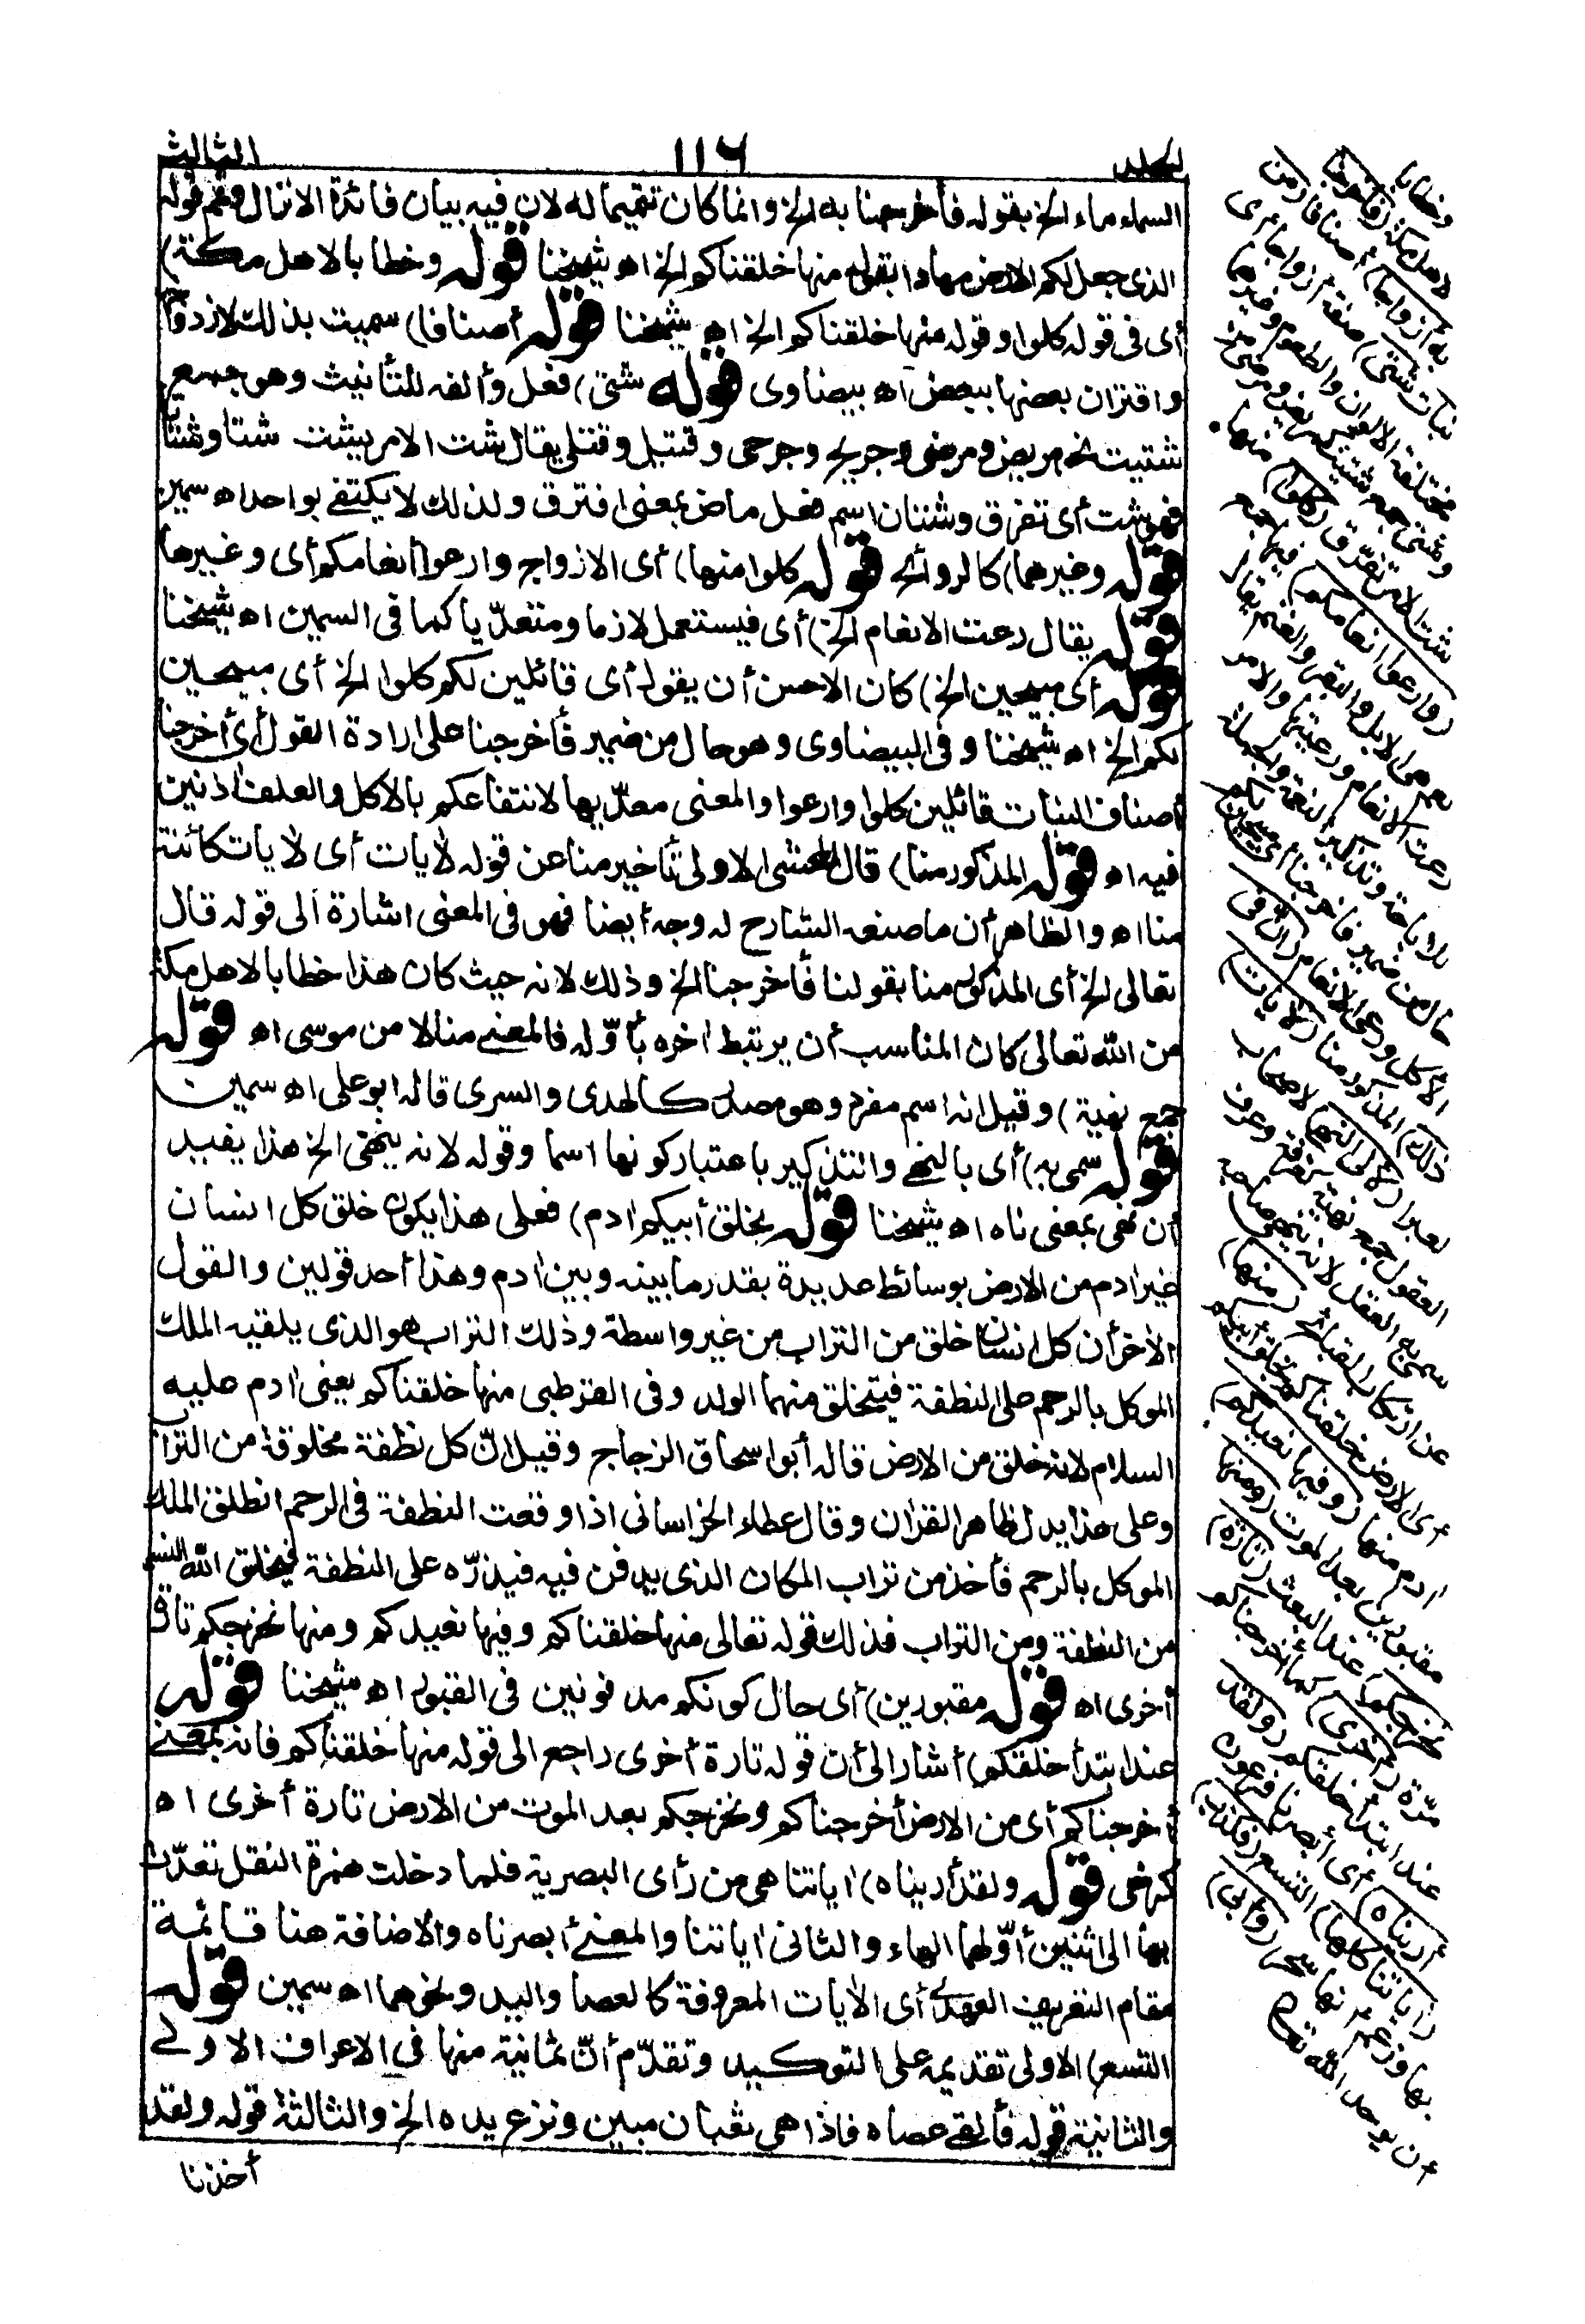 المجلد ١١٦ الثالث
السماء ماء الخ بقوله فأخرجنا به الخ وانما كان تتميما له لان فيه بيان فائدة الانزال وتمم قوله
الذى جعل لكم الارض مهادا بقوله منها خلقناكم الخ اه شيخنا قوله وخطابا لاهل مكة)
أى فى قوله كلوا وقوله منها خلقناكم الخ اه شيخنا قوله أصنافا) سميت بذلك لازدواجها
واقتران بعضها ببعض اه بيضاوى قوله شتى) فعلى وألفه للتأنيث وهو جمع
شتيت نحو مريض ومرضى وجريح وجرحى وقتيل وقتلى يقال شت الامر يشت شتا وشتاتا
فهو شت أى تفرق وشتان اسم فعل ماض بمعنى افترق ولذلك لا يكتفى بواحد اه سمين
قوله وغيرهما) كالروائح قوله كلوا منها) أى الازواج وارعوا أنعامكم أى وغيرها
قوله يقال رعت الانعام الخ) أى فيستعمل لازما ومتعدّيا كما فى السمين اه شيخنا
قوله أى مبيحين الخ) كان الاحسن أن يقول أى قائلين لكم كلوا الخ أى مبيحين
لكم الخ اه شيخنا وفى البيضاوى وهو حال من ضمير فأخرجنا على ارادة القول أى أخرجنا
أصناف النبات قائلين كلوا وارعوا والمعنى معدّيها لانتفاعكم بالاكل والعلف اذنين
فيه اه قوله المذكور منا) قال المحشى الاولى تأخير منا عن قوله لايات أى لايات كائنة
منا اه والظاهر أن ما صنعه الشارح له وجه أيضا فهو فى المعنى اشارة الى قوله قال
تعالى الخ أى المذكور منا بقولنا فأخرجنا الخ وذلك لانه حيث كان هذا خطابا لاهل مكة
من الله تعالى كان المناسب أن يرتبط اخره بأوّله فالمعنى منا لا من موسى اه قوله
جمع نهية) وقيل انه اسم مفرد وهو مصدر كالهدى والسرى قاله ابو على اه سمين
قوله سمى به) أى بالنهى والتذكير باعتبار كونها اسما وقوله لانه ينهى الخ هذا يفيد
أن نهى بمعنى ناه اه شيخنا قوله بخلق أبيكم ادم) فعلى هذا يكون خلق كل انسان
غير ادم من الارض بوسائط عديدة بقدر ما بينه وبين ادم وهذا أحد قولين والقول
الاخر أن كل انسان خلق من التراب من غير واسطة وذلك التراب هو الذى يلقيه الملك
الموكل بالرحم على النطفة فيتخلق منهما الولد وفى القرطبى منها خلقناكم يعنى ادم عليه
السلام لانه خلق من الارض قاله أبو اسحاق الزجاج وقيل انّ كل نطفة مخلوقة من التراب
وعلى هذا يدل ظاهر القران وقال عطاء الخراسانى اذا وقعت النطفة فى الرحم انطلق الملك
الموكل بالرحم فأخذ من تراب المكان الذى يدفن فيه فيذرّه على النطفة فيخلق الله النسمة
من النطفة ومن التراب فذلك قوله تعالى منها خلقناكم وفيها نعيدكم ومنها نخرجكم تارة
أخرى اه قوله مقبورين) أى حال كونكم مدفونين فى القبور اه شيخنا قوله
عند ابتدأ خلقكم) أشار الى أن قوله تارة أخرى راجع الى قوله منها خلقناكم فانه بمعنى
أخرجناكم أى من الارض أخرجناكم ونخرجكم بعد الموت من الارض تارة أخرى اه
كرخى قوله ولقد أريناه) اياتنا هى من رأى البصرية فلما دخلت همزة النقل تعدّت
بها الى اثنين أوّلهما الهاء والثانى اياتنا والمعنى أبصرناه والاضافة هنا قائمة
مقام التعريف العهدى أى الايات المعروفة كالعصا واليد ونحوهما اه سمين قوله
التسع) الاولى تقديمه على التوكيد وتقدّم أنّ ثمانية منها فى الاعراف الاولى
والثانية قوله فألقى عصاه فاذا هى ثعبان مبين ونزع يده الخ والثالثة قوله ولقد
أخذنا
وخطابا
لاهل مكة (فأخرجنا
به أزواجا) أصنافا (من
نبات شتى) صفة أزواجا أى
مختلفة الالوان والطعوم وغيرهما
وشتى جمع شتيت كمريض ومرضى من
شت الامر تفرّق (كلوا) منها
(وارعوا أنعامكم) فيها جمع
نعم هى الابل والبقر والغنم يقال
رعت الانعام ورعيتها والامر
للاباحة وتذكير النعمة والجملة
حال من ضمير فأخرجنا أى مبيحين لكم
الاكل ورعى الانعام (ان فى
ذلك) المذكور منا (لايات)
لعبرا (لاولى النهى) لاصحاب
العقول جمع نهية كغرفة وغرف
سمى به العقل لانه ينهى صاحبه
عن ارتكاب القبائح (منها)
أى الارض (خلقناكم) بخلق أبيكم
ادم منها (وفيها نعيدكم)
مقبورين بعد الموت (ومنها
نخرجكم) عند البعث (تارة)
مرّة (أخرى) كما أخرجناكم
عند ابتدأ خلقكم (ولقد
أريناه) أى أبصرنا فرعون
(اياتنا كلها) التسع (فكذب)
بها وزعم انها سحر (وأبى)
أن يوحد الله تعالى